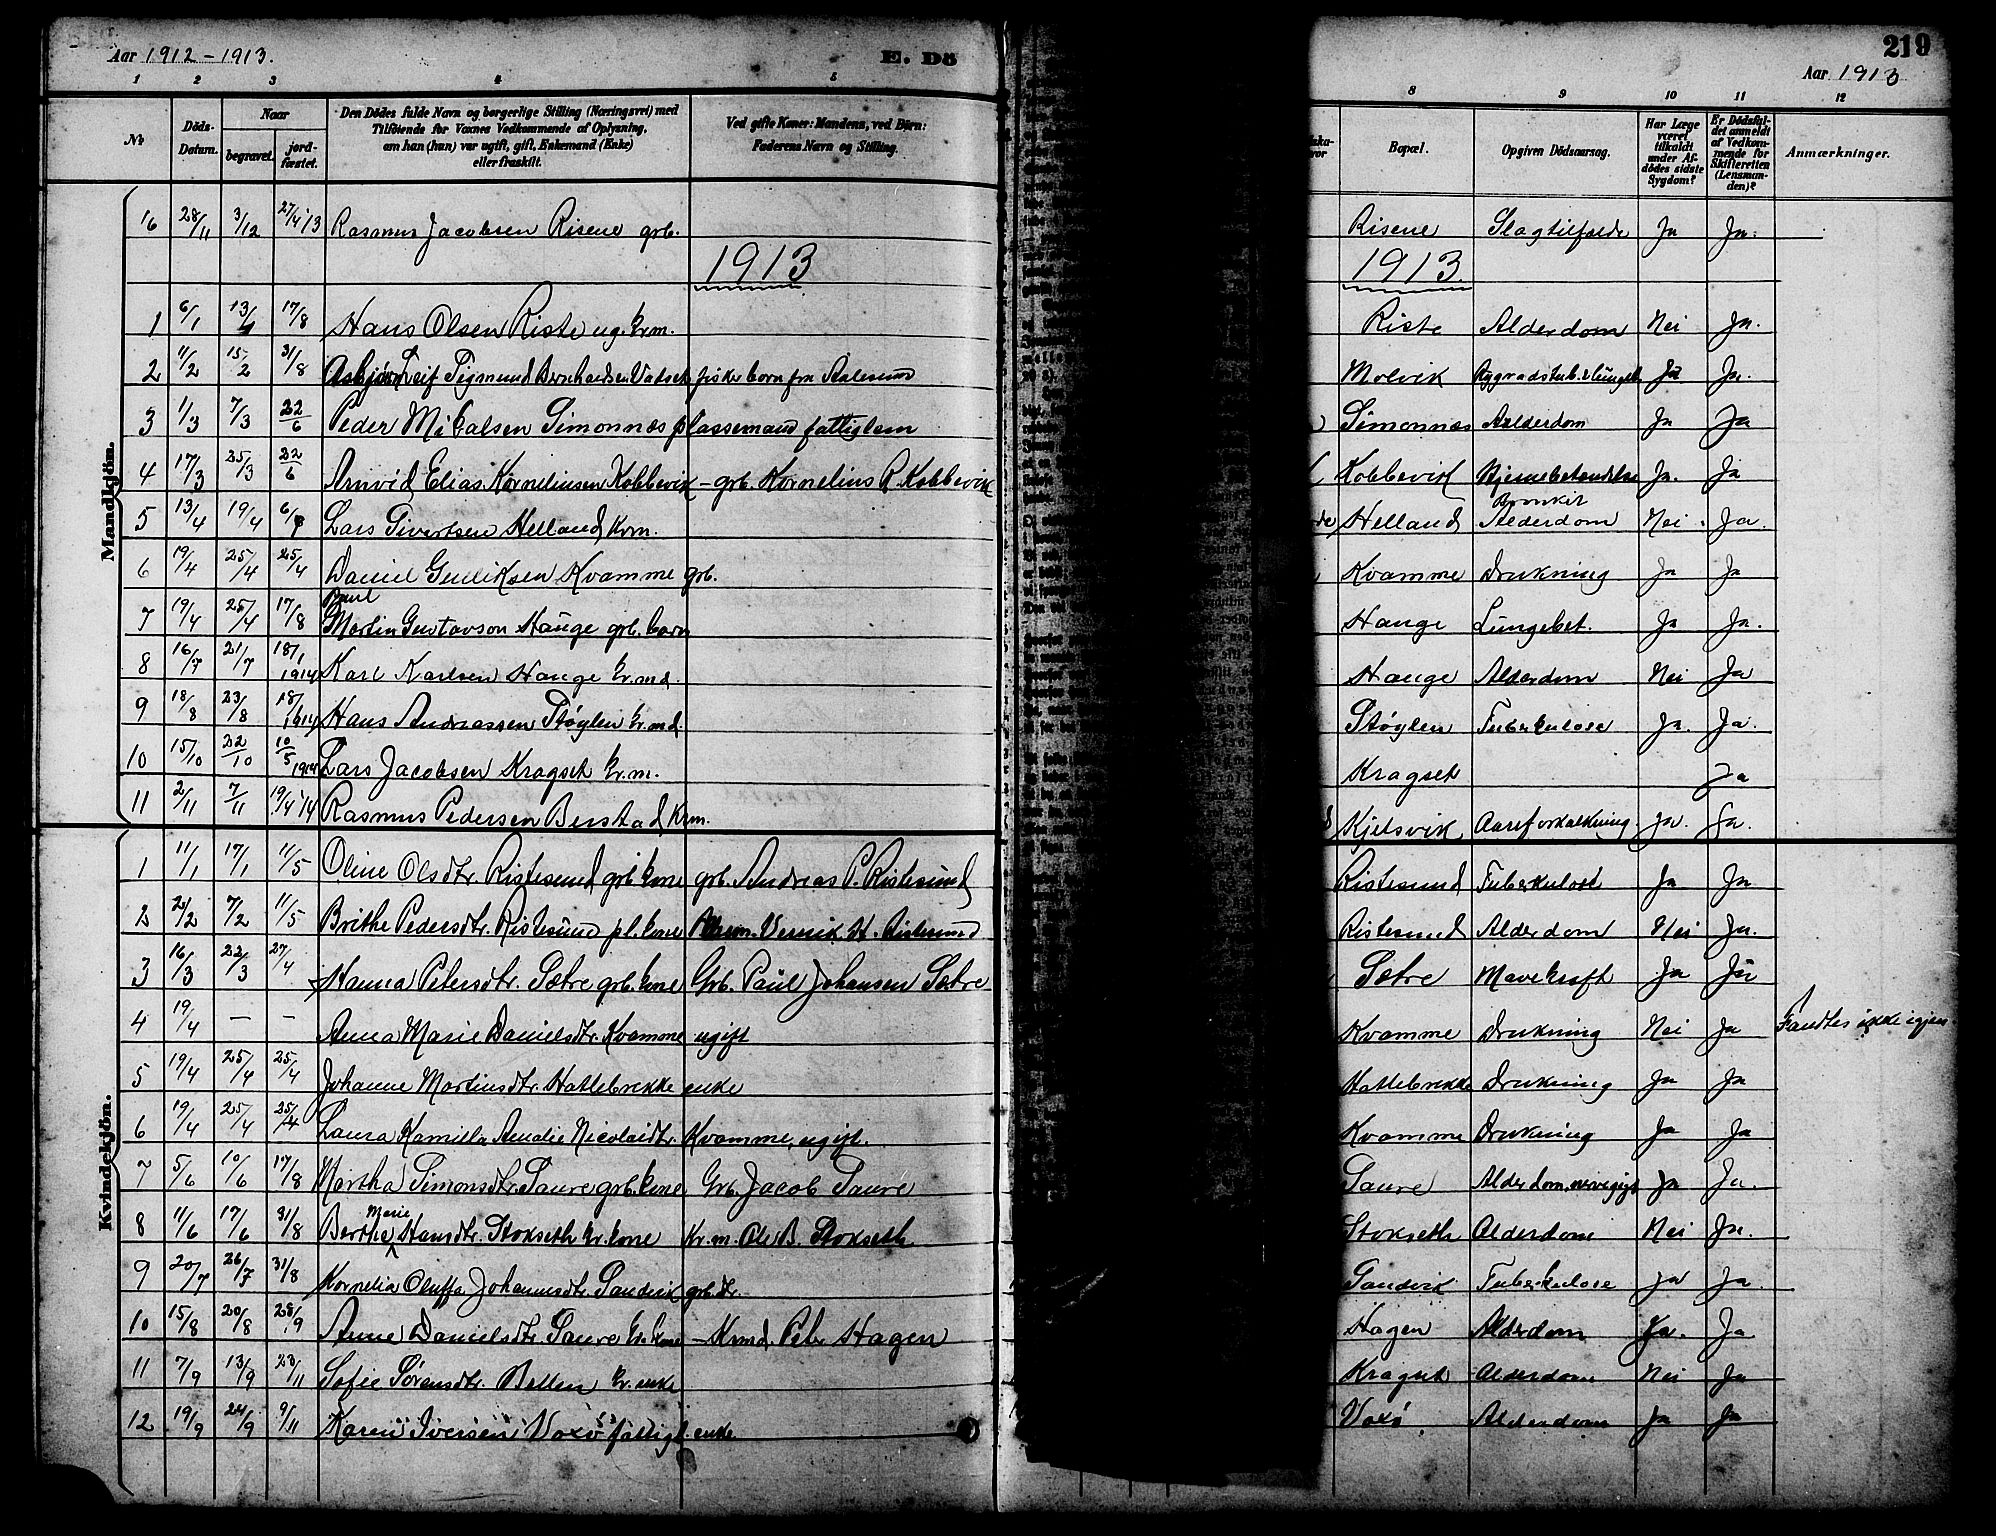 Aar 1912-1913. E. Dö 219
Aar 1913
1 2 3 4 5 8 9 10 11 12
№ Döds-Datum. Naar begravet. jordfæstet. Den Dödes fulde Navn og borgerlige Stilling (Næringsvei) med Tilföiende for Voxnes Vedkommende af Oplysning, om han (hun) var ugift, gift, Enkemand (Enke) eller fraskilt. Ved gifte Koner: Mandens, ved Børn: Faderens Navn og Stilling. Bopæl. Opgiven Dödsaarsag. Har Læge været tilkaldt under Afdödes sidste Sygdom? Er Dödsfaldet anmeldt af Vedkommende for Skifteretten (Lensmanden)? Anmærkninger.
Mandkjön.
16 28/11 3/12 27/4 13 Rasmus Jacobsen Risene grb. Risene Slagtilfælde Ja Ja.
1913 1913.
1 6/1 13/ 17/8 Hans Olsen Riste ug. krm. Riste Alderdom Nei Ja.
2 11/2 15/2 31/8 Asbjørn Leif Sigmund Bernhardsen Vatset fisker barn fra Aalesund Molvik Ja Ja.
3 1/3 7/3 22/6 Peder Mikalsen Simonnæs plassemand fattiglem Simonnæs Alderdom Ja Ja
4 17/3 25/3 22/6 Arnvid Elias Kornelinsen Kobbevik - grb. Kornelius R. Kobbevik Kobbevik Hjernebetændelse Ja. Ja
5 13/4 19/4 6/ Lars Sivertsen Helland krm. Helland Bronkit Alderdom Nei. Ja.
6 19/4 25/4 25/4 Daniel Gulliksen Kvamme grb. Kvamme Drukning Ja Ja
7 19/4 25/4 17/8 Paul Martin Gustavson Hauge grb. barn Hauge Lungebet. Ja Ja.
8 16/7 21/7 18/1 1914 Karl Karlsen Hauge kr.md. Hauge Alderdom Nei Ja
9 18/8 23/8 18/1 1914 Hans Andreassen Støylen kr.md. Støylen Tuberkulose Ja. Ja.
10 15/10 22/10 10/5 1914 Lars Jacobsen Kragset kr.m. Kragset Ja
11 2/11 7/11 19/4 '14 Rasmus Pedersen Berstad krm. Kjelsvik Aareforkalkning. Ja. Ja.
Kvindekjön.
1 11/1 17/1 11/5 Oline Olsdtr. Ristesund grb. kone grb. Andreas P. Ristesund Ristesund Tuberkulose Ja Ja
2 2/2 7/2 11/5 Brithe Pedersdtr. Ristesund pl. kone H. Ristesund Ristesund Alderdom Nei Ja.
3 16/3 22/3 27/4 Hanna Petersdtr. Sætre grb. kone Grb. Paul Johansen Sætre Sætre Mavekræft Ja Ja
4 19/4 - - Anna Marie Danielsdtr. Kvamme ugift Kvamme Drukning Nei Ja Fandtes ikke igjen.
5 19/4 25/4 25/4 Johanne Martinsdtr. Hattlebrekke enke Hattlebrekke Drukning Ja Ja
6 19/4 25/4 25/4 Laura Kamilla Amalie Nicolaidtr. Kvamme, ugift. Kvamme Drukning Ja Ja
7 5/6 10/6 17/8 Martha Simonsdtr. Saure grb. kone Grb. Jacob Saure Saure Alderdom, nervegigt Ja Ja.
8 11/6 17/6 31/8 Berthe Marie Hansdtr. Stokseth kr. kone Kr.m. Ole B. Stokseth Stokseth Alderdom Nei Ja.
9 20/7 26/7 31/8 Kornelia Oluffa Johannesdtr. Sandvik grb. dr. Sandvik Tuberkulose Ja Ja.
10 15/8 20/8 28/9 Anne Danielsdtr. Saure kr. kone - Krmd. Peter Hagen Hagen Alderdom Ja. Ja
11 7/9 13/9 23/11 Sofie Sørensdtr. Belten kr. enke Kragset Alderdom Nei Ja
12 19/9 24/9 9/11 Karen Iversen Voxø fattigl. enke Voxø Alderdom Ja Ja